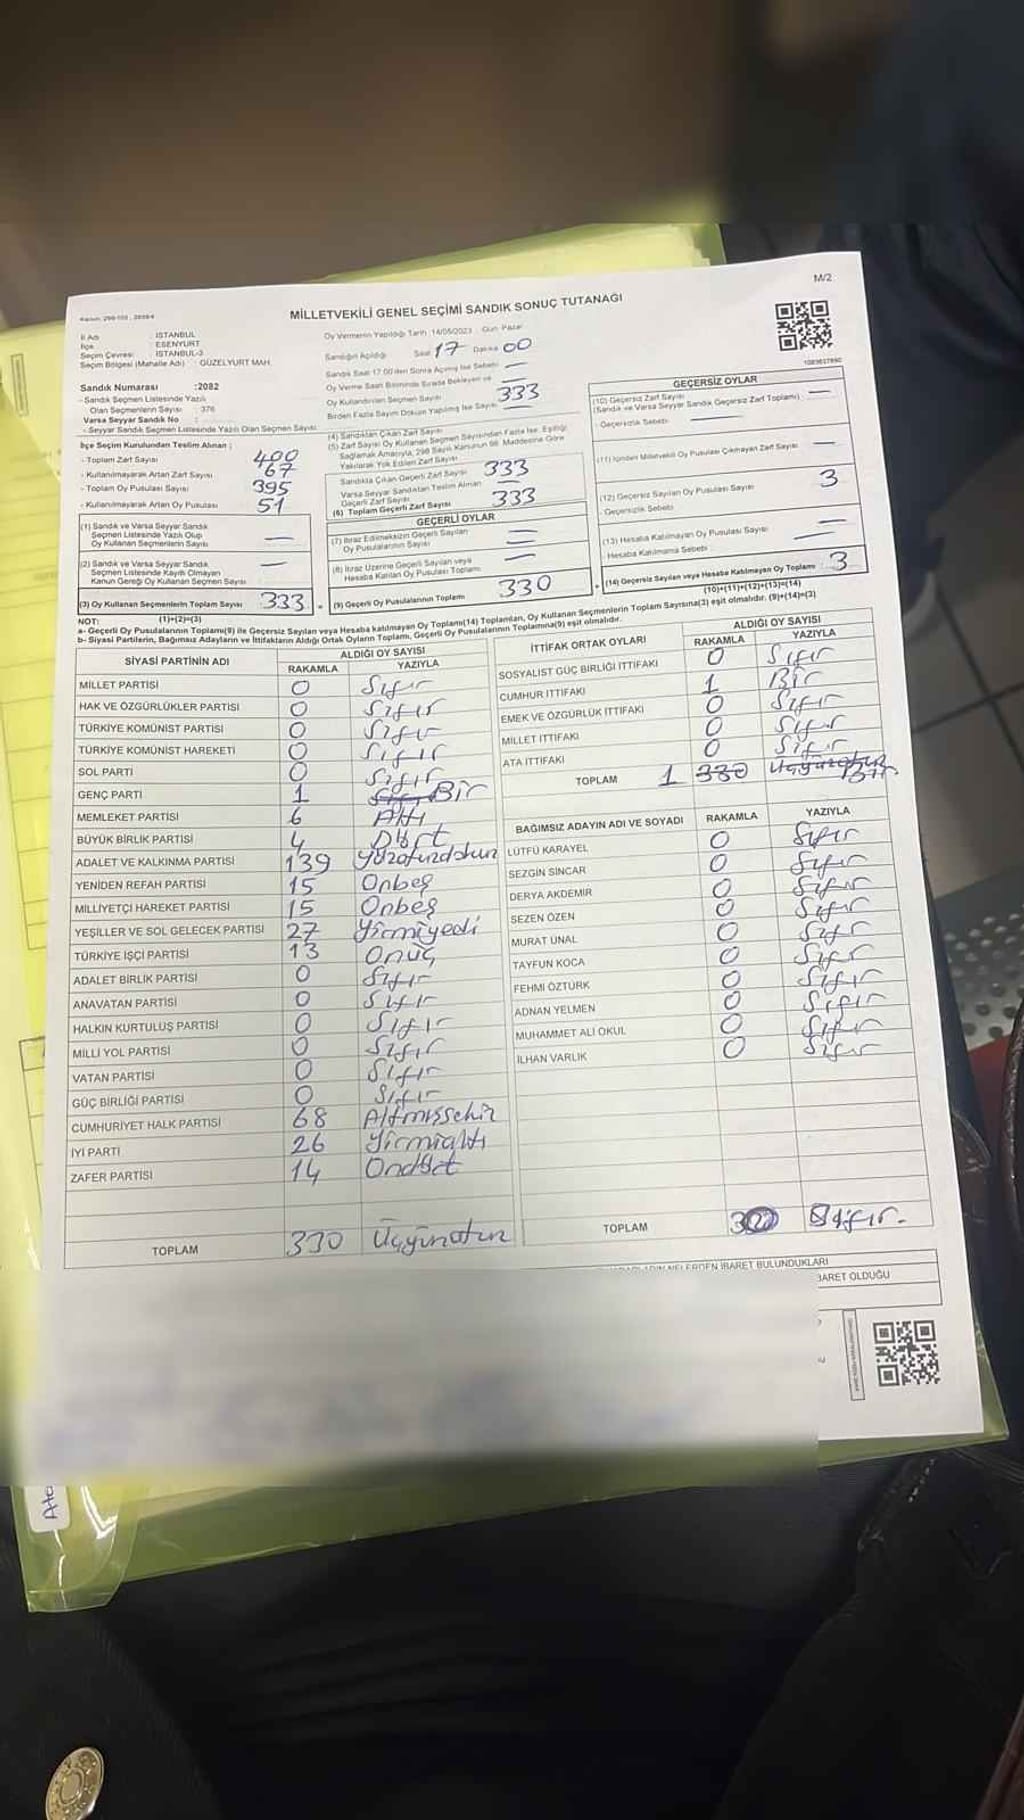 M/2
MİLLETVEKİLİ GENEL SEÇİMİ SANDIK SONUÇ TUTANAĞI
İl Adı : İSTANBUL
İlçe : ESENYURT
Seçim Çevresi : İSTANBUL-3
Seçim Bölgesi (Mahalle Adı) : GÜZELYURT MAH.
Sandık Numarası :2082
- Sandık Seçmen Listesinde Yazılı
Olan Seçmenlerin Sayısı : 376
Varsa Seyyar Sandık No :
- Seyyar Sandık Seçmen Listesinde Yazılı Olan Seçmen Sayısı
İlçe Seçim Kurulundan Teslim Alınan ;
- Toplam Zarf Sayısı 400
- Kullanılmayarak Artan Zarf Sayısı 67
- Toplam Oy Pusulası Sayısı 395
- Kullanılmayarak Artan Oy Pusulası 51
(1) Sandık ve Varsa Seyyar Sandık
Seçmen Listesinde Yazılı Olup
Oy Kullanan Seçmenlerin Sayısı —
(2) Sandık ve Varsa Seyyar Sandık
Seçmen Listesinde Kayıtlı Olmayan
Kanun Gereği Oy Kullanan Seçmen Sayısı —
(3) Oy Kullanan Seçmenlerin Toplam Sayısı 333
(1)+(2)=(3)
Oy Vermenin Yapıldığı Tarih :14/05/2023 Gün: Pazar
Sandığın Açıldığı Saat 17 Dakika 00
Sandık Saat 17.00'den Sonra Açılmış İse Sebebi —
Oy Verme Saati Bitiminde Sırada Bekleyen ve
Oy Kullandırılan Seçmen Sayısı 333
Birden Fazla Sayım Döküm Yapılmış İse Sayısı —
(4) Sandıktan Çıkan Zarf Sayısı
(5) Zarf Sayısı Oy Kullanan Seçmen Sayısından Fazla İse, Eşitliği
Sağlamak Amacıyla, 298 Sayılı Kanunun 98. Maddesine Göre
Yakılarak Yok Edilen Zarf Sayısı
Sandıkta Çıkan Geçerli Zarf Sayısı 333
Varsa Seyyar Sandıktan Teslim Alınan
Geçerli Zarf Sayısı —
(6) Toplam Geçerli Zarf Sayısı 333
GEÇERLİ OYLAR
(7) İtiraz Edilmeksizin Geçerli Sayılan
Oy Pusulalarının Sayısı —
(8) İtiraz Üzerine Geçerli Sayılan veya
Hesaba Katılan Oy Pusulası Toplamı —
(9) Geçerli Oy Pusulalarının Toplamı 330
GEÇERSİZ OYLAR
(10) Geçersiz Zarf Sayısı
(Sandık ve Varsa Seyyar Sandık Geçersiz Zarf Toplamı) —
- Geçersizlik Sebebi —
(11) İçinden Milletvekili Oy Pusulası Çıkmayan Zarf Sayısı —
(12) Geçersiz Sayılan Oy Pusulası Sayısı 3
- Geçersizlik Sebebi
(13) Hesaba Katılmayan Oy Pusulası Sayısı —
Hesaba Katılmama Sebebi —
(14) Geçersiz Sayılan veya Hesaba Katılmayan Oy Toplamı 3
(10)+(11)+(12)+(13)=(14)
NOT:
a- Geçerli Oy Pusulalarının Toplamı(9) ile Geçersiz Sayılan veya Hesaba katılmayan Oy Toplamı(14) Toplamları, Oy Kullanan Seçmenlerin Toplam Sayısına(3) eşit olmalıdır. (9)+(14)=(3)
b- Siyasi Partilerin, Bağımsız Adayların ve İttifakların Aldığı Ortak Oyların Toplamı, Geçerli Oy Pusulalarının Toplamına(9) eşit olmalıdır.
SİYASİ PARTİNİN ADI ALDIĞI OY SAYISI
RAKAMLA YAZIYLA
MİLLET PARTİSİ 0 Sıfır
HAK VE ÖZGÜRLÜKLER PARTİSİ 0 Sıfır
TÜRKİYE KOMÜNİST PARTİSİ 0 Sıfır
TÜRKİYE KOMÜNİST HAREKETİ 0 Sıfır
SOL PARTİ 0 Sıfır
GENÇ PARTİ 1 Bir
MEMLEKET PARTİSİ 6 Altı
BÜYÜK BİRLİK PARTİSİ 4 Dört
ADALET VE KALKINMA PARTİSİ 139 Yüzotuzdokuz
YENİDEN REFAH PARTİSİ 15 Onbeş
MİLLİYETÇİ HAREKET PARTİSİ 15 Onbeş
YEŞİLLER VE SOL GELECEK PARTİSİ 27 Yirmiyedi
TÜRKİYE İŞÇİ PARTİSİ 13 Onüç
ADALET BİRLİK PARTİSİ 0 Sıfır
ANAVATAN PARTİSİ 0 Sıfır
HALKIN KURTULUŞ PARTİSİ 0 Sıfır
MİLLİ YOL PARTİSİ 0 Sıfır
VATAN PARTİSİ 0 Sıfır
GÜÇ BİRLİĞİ PARTİSİ 0 Sıfır
CUMHURİYET HALK PARTİSİ 68 Altmışsekiz
İYİ PARTİ 26 Yirmialtı
ZAFER PARTİSİ 14 Ondört
TOPLAM 330 Üçyüzotuz
İTTİFAK ORTAK OYLARI ALDIĞI OY SAYISI
RAKAMLA YAZIYLA
SOSYALİST GÜÇ BİRLİĞİ İTTİFAKI 0 Sıfır
CUMHUR İTTİFAKI 1 Bir
EMEK VE ÖZGÜRLÜK İTTİFAKI 0 Sıfır
MİLLET İTTİFAKI 0 Sıfır
ATA İTTİFAKI 0 Sıfır
TOPLAM 1 330 Üçyüzotuz Bir
BAĞIMSIZ ADAYIN ADI VE SOYADI RAKAMLA YAZIYLA
LÜTFÜ KARAYEL 0 Sıfır
SEZGİN SİNCAR 0 Sıfır
DERYA AKDEMİR 0 Sıfır
SEZEN ÖZEN 0 Sıfır
MURAT ÜNAL 0 Sıfır
TAYFUN KOCA 0 Sıfır
FEHMİ ÖZTÜRK 0 Sıfır
ADNAN YELMEN 0 Sıfır
MUHAMMET ALİ OKUL 0 Sıfır
İLHAN VARLIK 0 Sıfır
TOPLAM Sıfır.
NELERDEN İBARET BULUNDUKLARI
BARET OLDUĞU
Ata